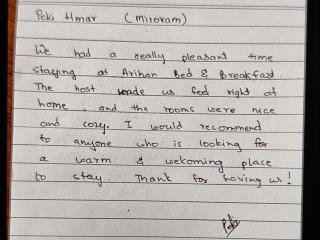 Peki Hmar (Mizoram)
We had a really pleasant time
staying at Arihan Bed & Breakfast.
The host made us feel right at
home, and the rooms were nice
and cozy. I would recommend
to anyone who is looking for
a warm & welcoming place
to stay. Thank for having us!
Peki